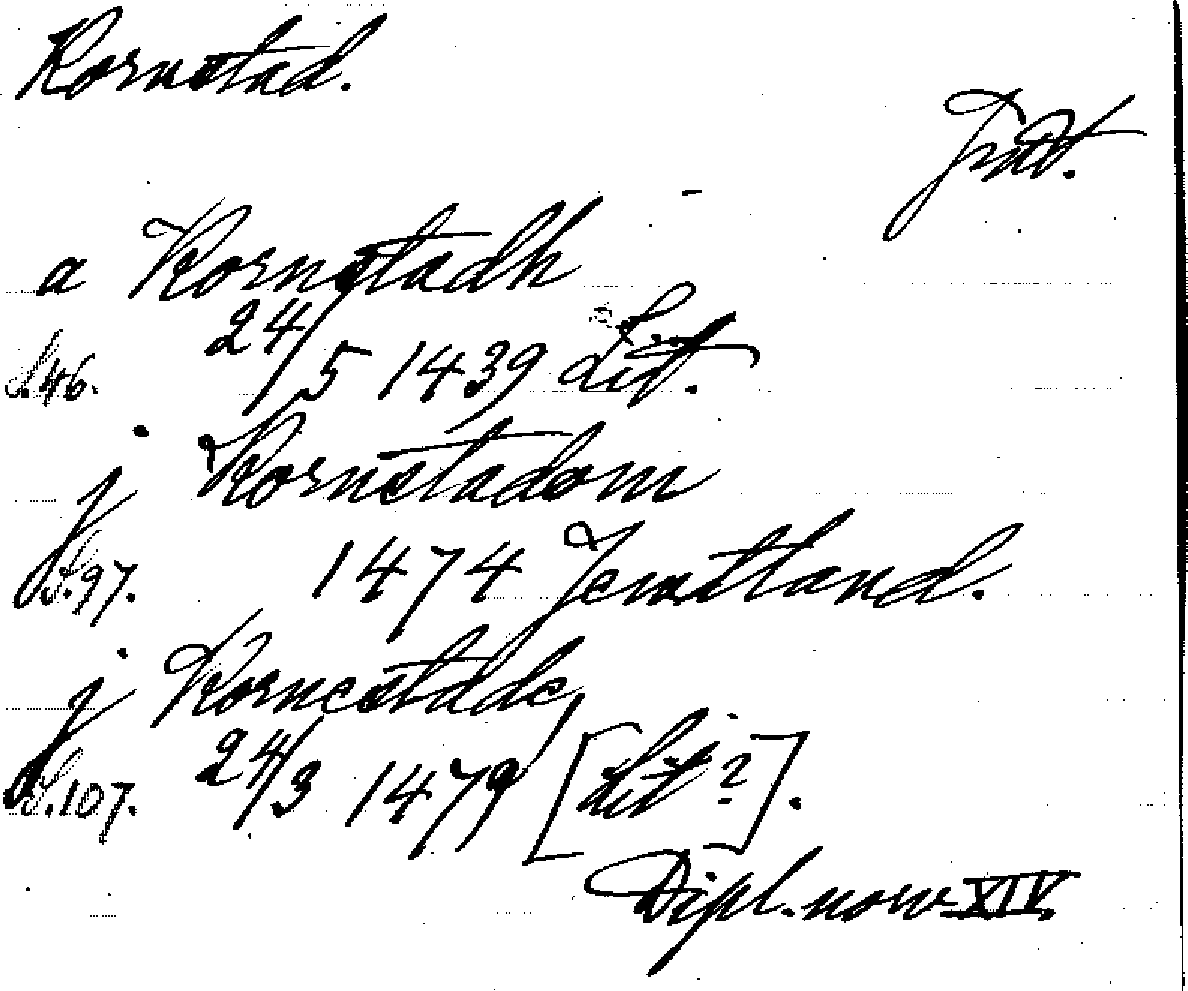 Kornstad.
Jmt.
a Kornstadh
S.46. 24/5 1439 Lit.
j Kornstadom
S.97. 1474 Jemtland.
j Kornestade,
S.107. 24/3 1479 [Lit?].
Dipl. norv XIV.